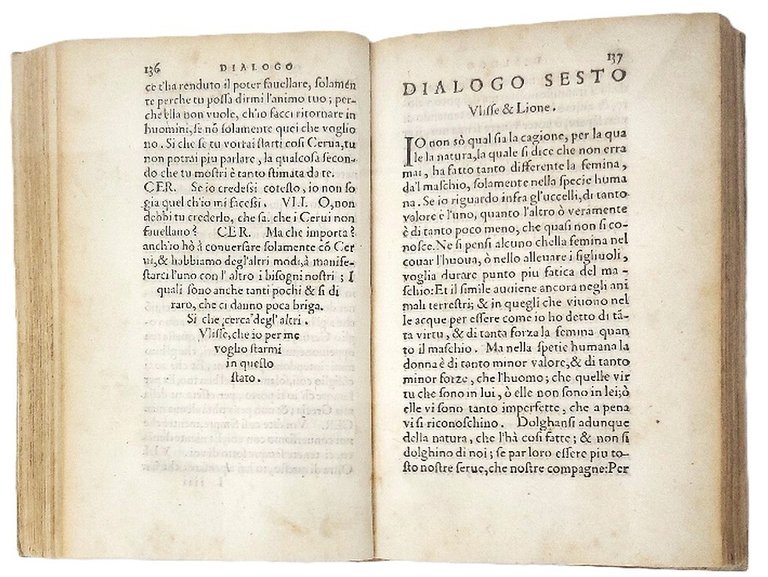 136
DIALOGO
ce t'ha renduto il poter fauellare, solamẽ
te perche tu possa dirmi l'animo tuo; per-
che ella non vuole, ch'io facci ritornare in
huomini, se nõ solamente quei che voglio
no. Si che se tu vorrai starti così Cerua, tu
non potrai piu parlare, la qualcosa secon-
do che tu mostri è tanto stimata da te.
CER. Se io credessi cotesto, io non so
gia quel ch'io mi facessi. VLI. O, non
debbi tu crederlo, che sa. che i Cerui non
fauellano? CER. Ma che importa?
anch'io hò à conuersare solamente cõ Cer
ui, & habbiamo degl'altri modi, à manife-
starci l'uno con l'altro i bisogni nostri; I
quali sono anche tanti pochi & si di
raro, che ci danno poca briga.
Si che cerca degl'altri.
Vlisse, che io per me
voglio starmi
in questo
stato.
137
DIALOGO SESTO
Vlisse & Lione.
IO non sò qual sia la cagione, per la qua
le la natura, la quale si dice che non erra
mai, ha fatto tanto differente la femina,
da'l maschio, solamente nella specie huma
na. Se io riguardo infra gl'uccelli, di tanto
valore è l'uno, quanto l'altro ò veramente
è di tanto poco meno, che quasi non si co-
nosce. Ne si pensi alcuno che la femina nel
couar l'huoua, ò nello alleuare i sigliuoli,
voglia durare punto piu fatica del ma-
schio: Et il simile auuiene ancora negli ani
mali terrestri; & in quegli che viuono nel
le acque per essere come io ho detto di tã
ta virtu, & di tanta forza la femina quan
to il maschio. Ma nella spetie humana la
donna è di tanto minor valore, & di tanto
minor forze, che l'huomo; che quelle vir
tu che sono in lui, ò elle non sono in lei; ò
elle vi sono tanto imperfette, che a pena
vi si riconoschino. Dolghansi adunque
della natura, che l'hà così fatte; & non si
dolghino di noi; se par loro essere piu to-
sto nostre serue, che nostre compagne: Per